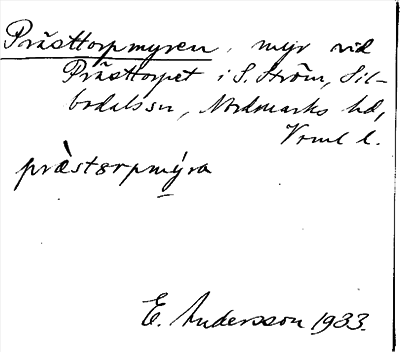 Prästtorpmyren, myr vid
Prästtorpet i S. Ström, Sil-
bodalssn, Nordmarks hd,
Vrml l.
præ̀storpmýra
E. Andersson 1933.